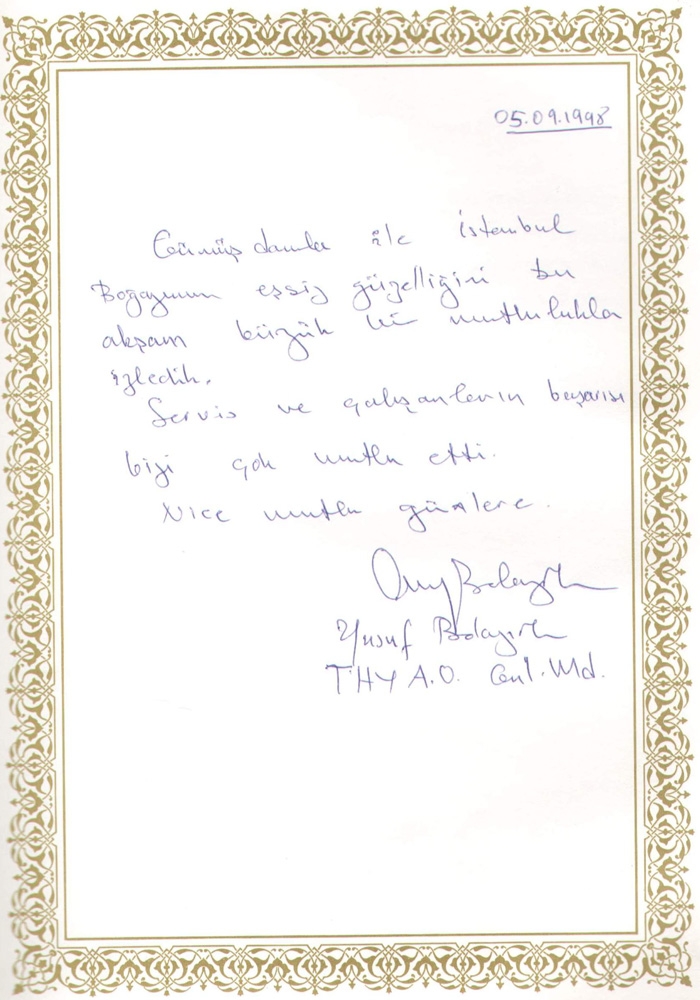 05.09.1998
Gümüş damla ile İstanbul
Boğazının eşsiz güzelliğini bu
akşam büyük bir mutlulukla
izledik.
Servis ve çalışanların başarısı
bizi çok mutlu etti.
Nice mutlu günlere.
Yusuf Bolayırlı
THY A.O. Genl. Md.